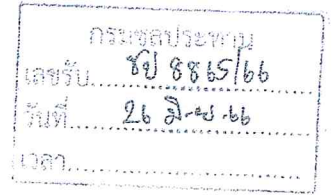 กรมชลประทาน
เลขรับ ชป 8865/66
วันที่ 26 มิ-ย-66
เวลา